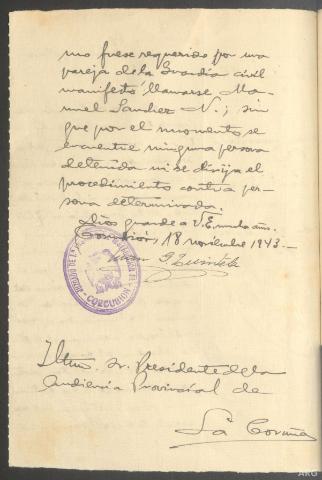 mo fuese requerido por una
pareja de la Guardia civil
manifestó llamarse Ma-
nuel Sanchez N.; sin
que por el momento se
encuentre ninguna persona
detenida ni se dirija el
procedimiento contra per-
sona determinada.
Dios guarde a V.E. muchos años.
Corcubión, 18 noviembre 1943.-
CORCUBION
Iltmo. Sr. Presidente de la
Audiencia Provincial de
La Coruña
ARG